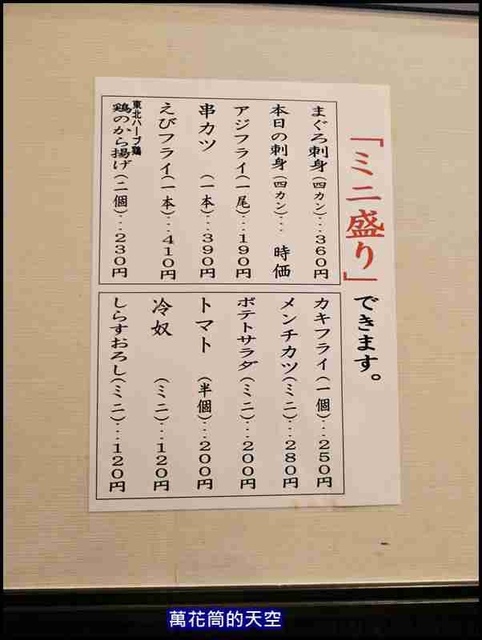 「ミニ盛り」できます。
まぐろ刺身(四カン)…360円
本日の刺身(四カン)… 時価
アジフライ(一尾)…190円
串カツ (一本)…390円
えびフライ(一本)…410円
東北ハーブ鶏
鶏のから揚げ(二個)…230円
カキフライ(一個)…250円
メンチカツ(ミニ)…280円
ポテトサラダ(ミニ)…200円
トマト (半個)…200円
冷奴 (ミニ)…120円
しらすおろし(ミニ)…120円
萬花筒的天空